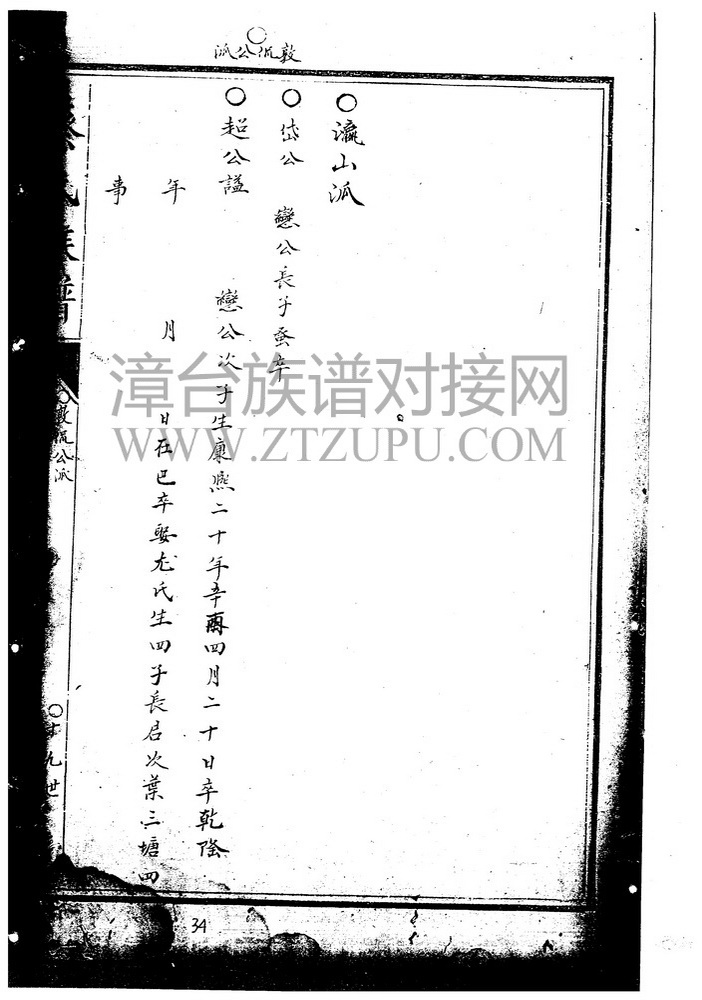 敦侃公派
○瀛山派
○岱公 戀公長子蚤卒
○超公謚 戀公次子生康熙二十年辛酉四月二十日卒乾隆
年 月 日在巳卒娶尤氏生四子長启次葉三塘四
事
氏族譜
○敦侃公派
九世
34
漳台族谱对接网
WWW.ZTZUPU.COM